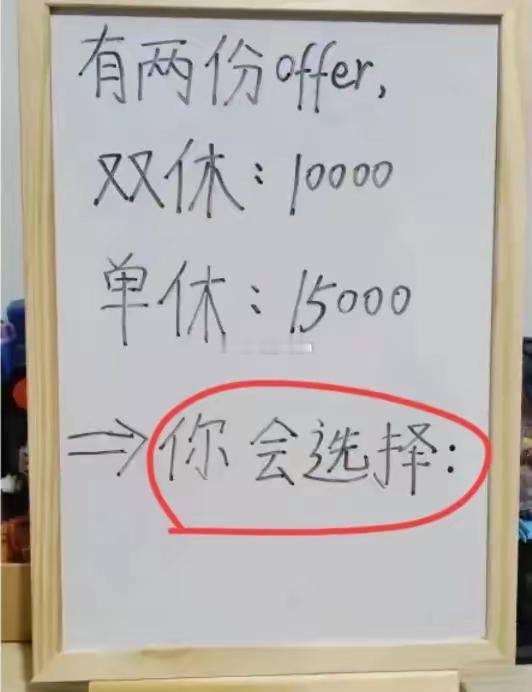 有两份offer,
双休：10000
单休：15000
⇒你会选择：